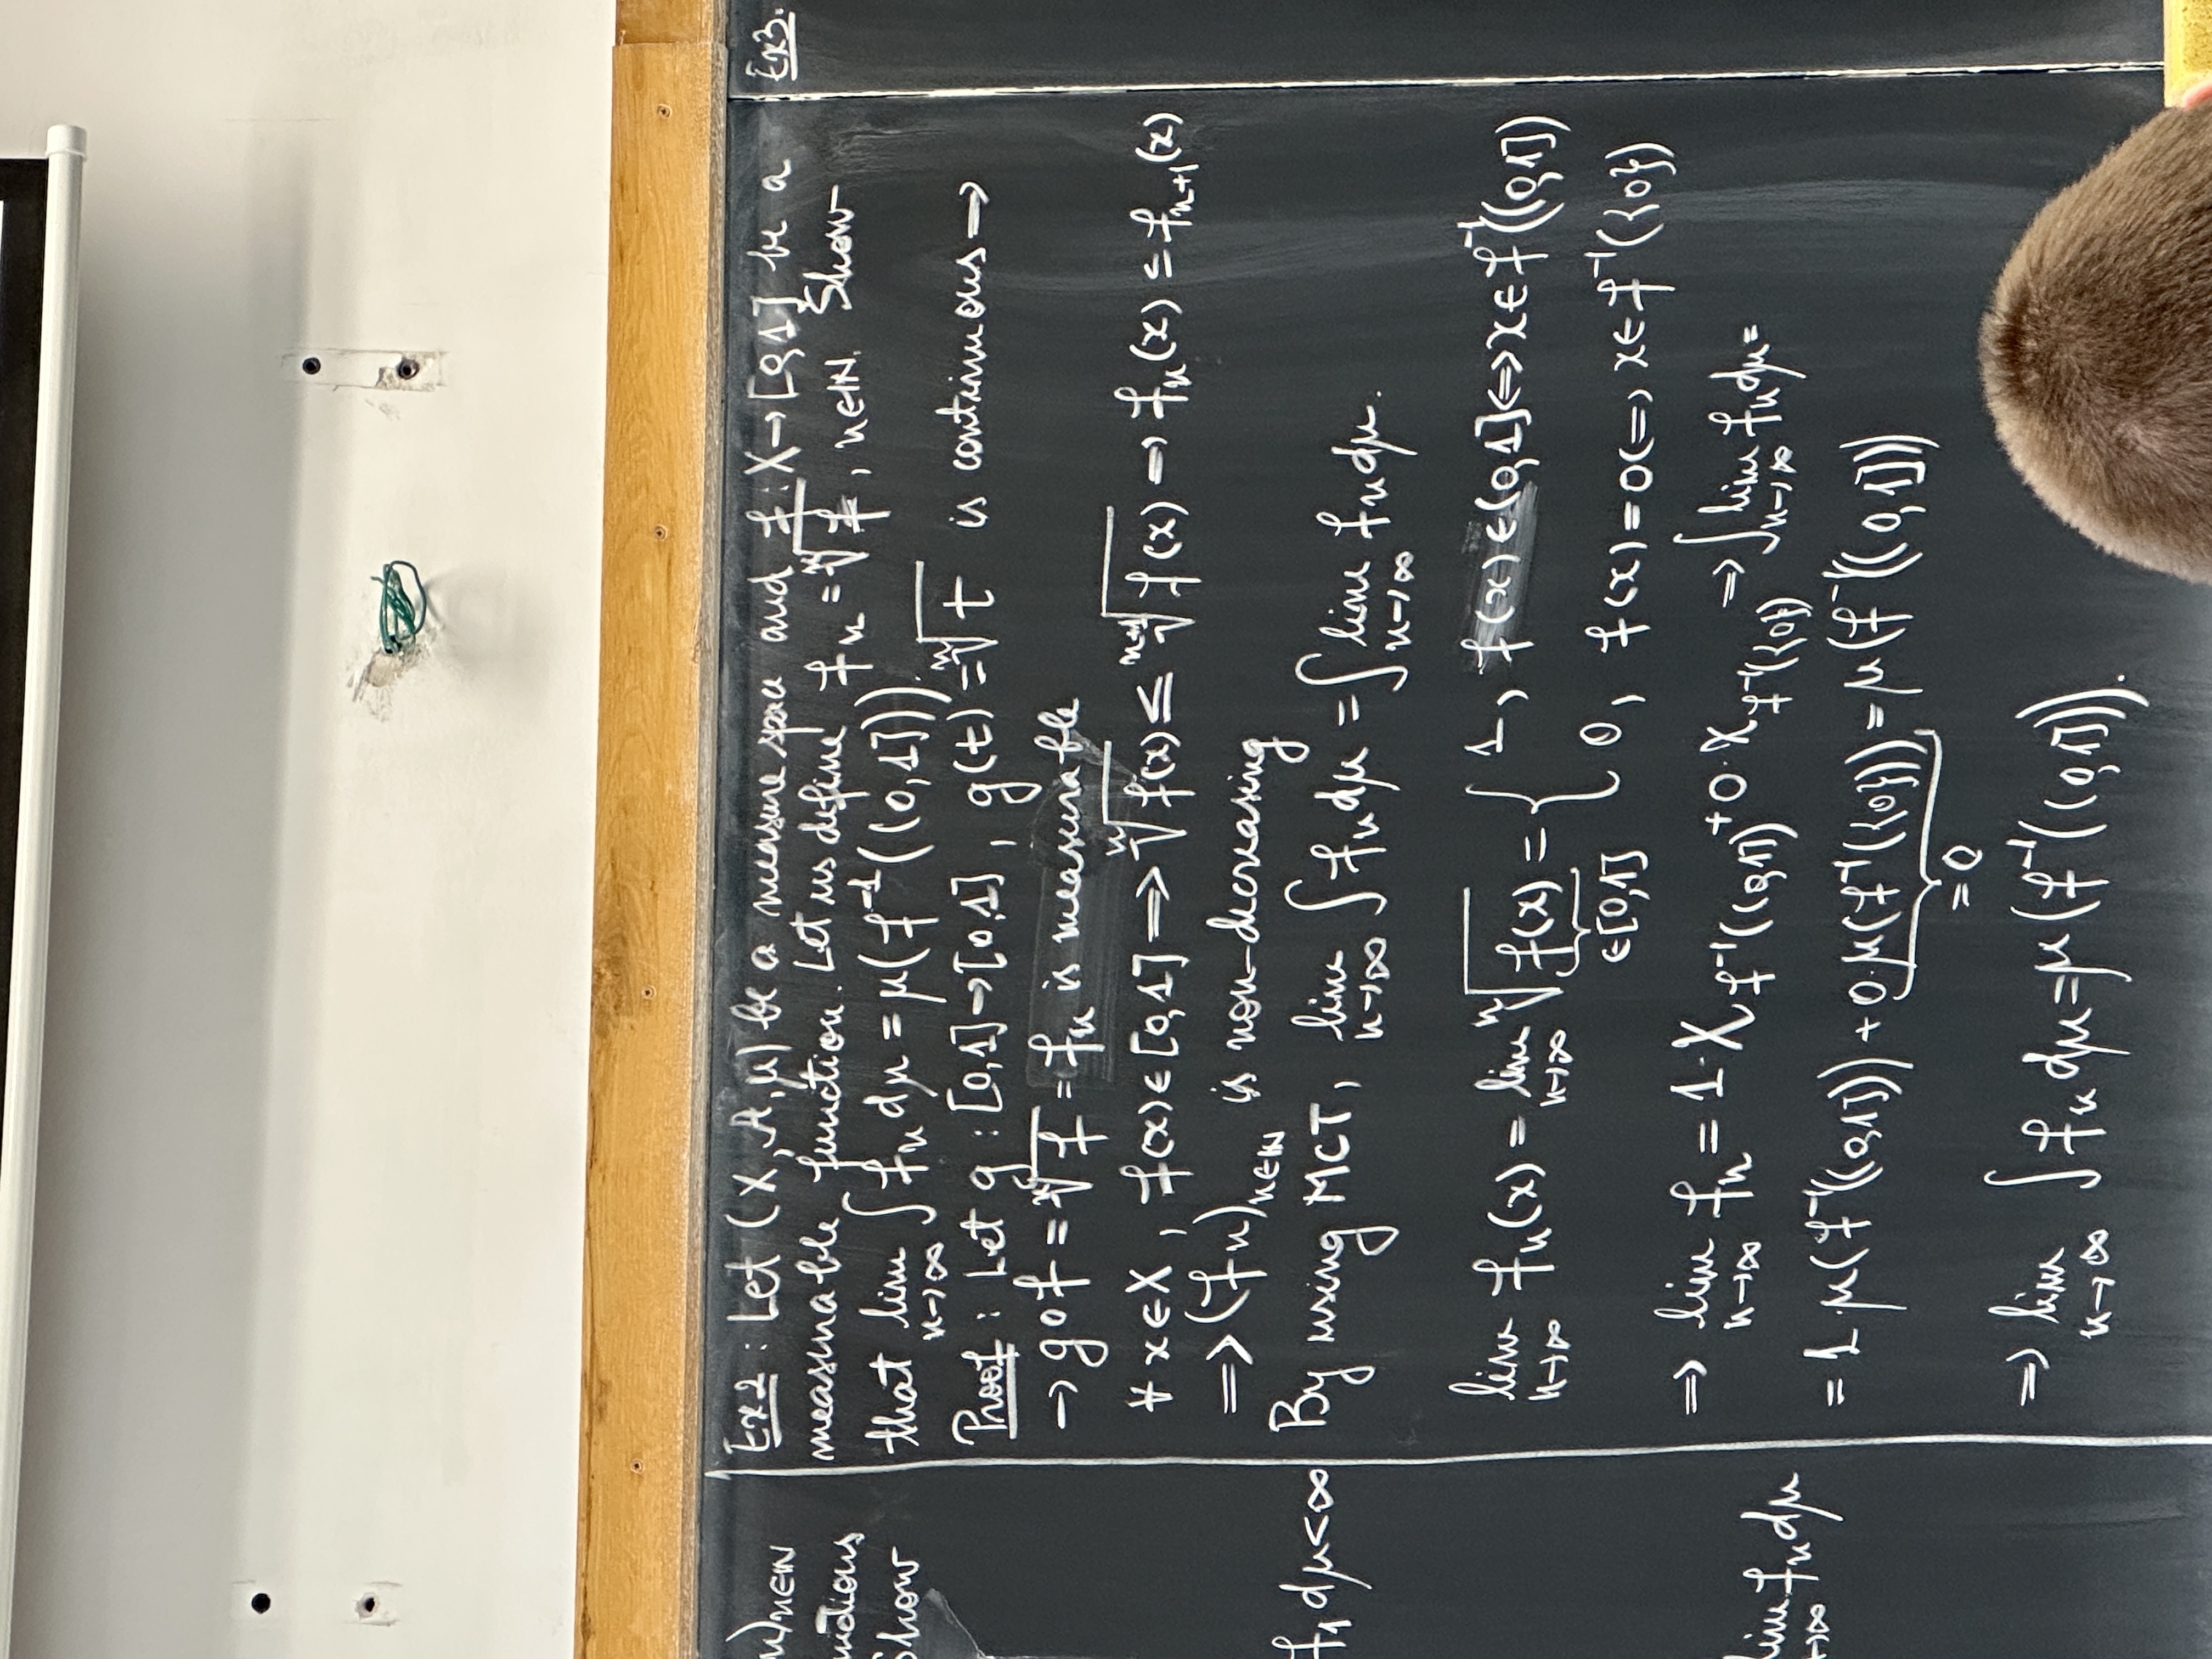 u)n∈ℕ
nctions
Show
f₁ dμ<∞
lim fₙ dμ
→∞
Ex2 : Let (X, A, μ) be a measure space and f : X → [0,1] be a
measurable function. Let us define fₙ = ⁿ√f , n∈ℕ. Show
that lim n→∞ ∫ fₙ dμ = μ(f⁻¹((0,1])).
Proof : Let g : [0,1] → [0,1] , g(t) = ⁿ√t is continuous →
→ g∘f = ⁿ√f = fₙ is measurable
∀ x∈X , f(x)∈[0,1] ⟹ ⁿ√f(x) ≤ ⁿ⁺¹√f(x) ⇒ fₙ(x) ≤ fₙ₊₁(x)
⟹ (fₙ)n∈ℕ is non-decreasing
By using MCT, lim n→∞ ∫ fₙ dμ = ∫ lim n→∞ fₙ dμ.
lim n→∞ fₙ(x) = lim n→∞ ⁿ√f(x) = { 1, f(x)∈(0,1] ⟺ x∈f⁻¹((0,1])
∈[0,1]
0, f(x)=0 ⟺ x∈f⁻¹({0})
⟹ lim n→∞ fₙ = 1·χ f⁻¹((0,1]) + 0·χ f⁻¹({0}) ⟹ ∫ lim n→∞ fₙ dμ =
= 1·μ(f⁻¹((0,1])) + 0·μ(f⁻¹({0})) = μ(f⁻¹((0,1]))
= 0
⟹ lim n→∞ ∫ fₙ dμ = μ(f⁻¹((0,1])).
Ex3.